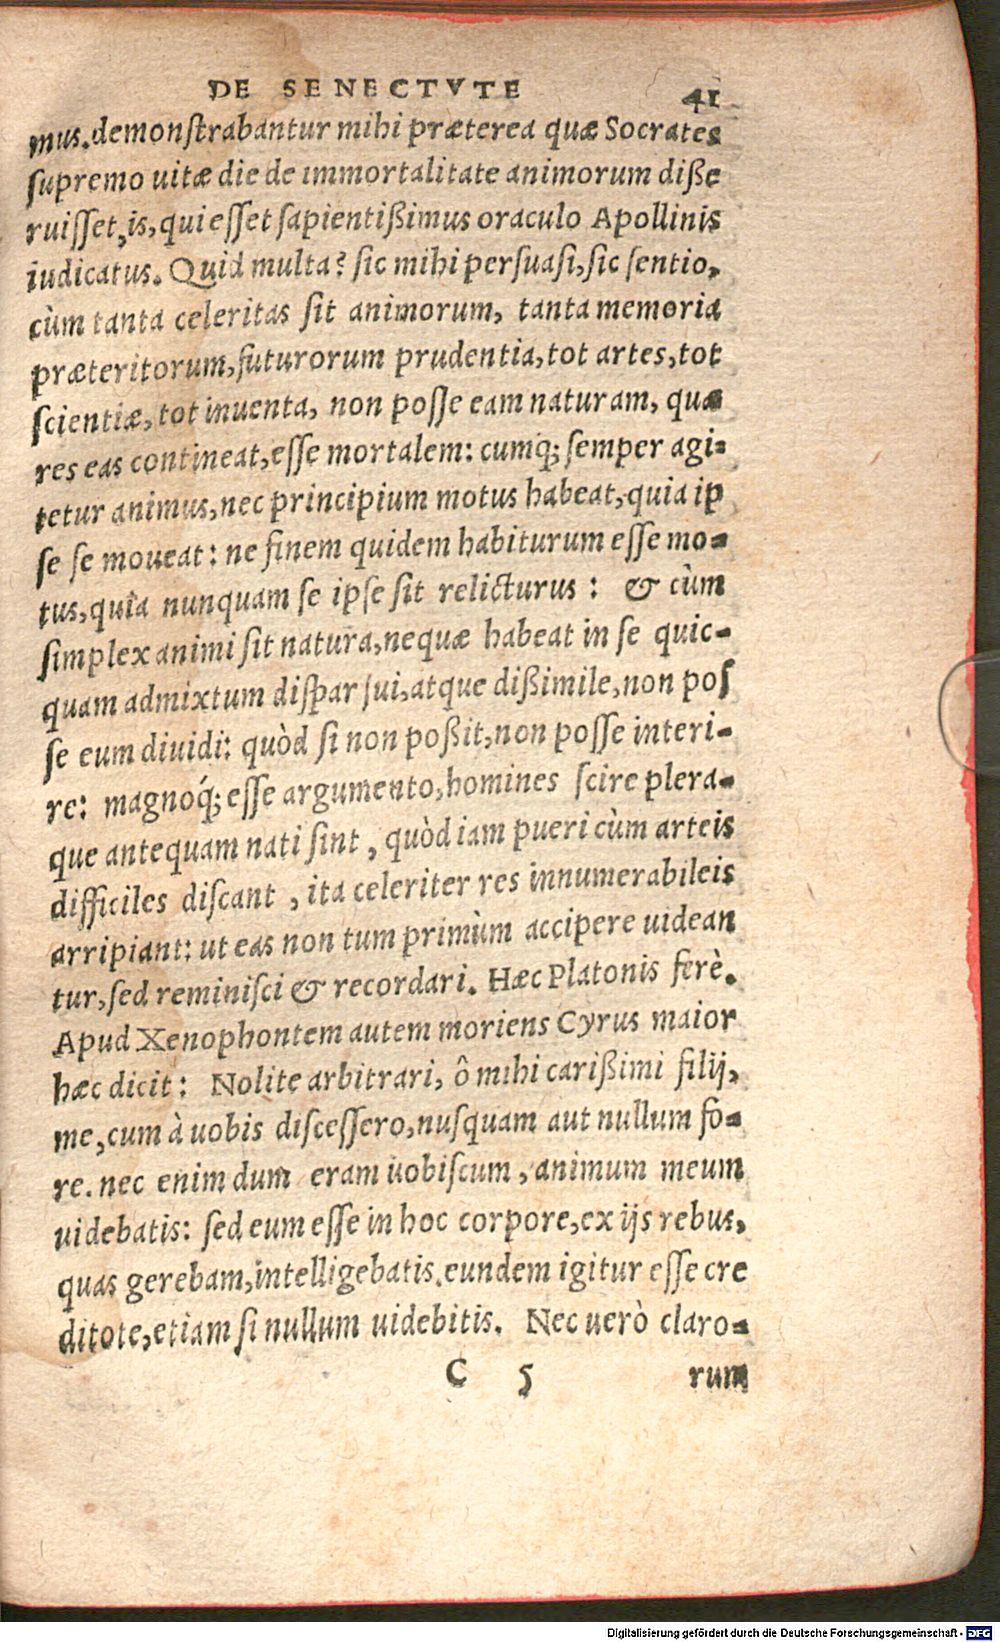 DE SENECTVTE 41
mus. demonſtrabantur mihi præterea quæ Socrates
ſupremo uitæ die de immortalitate animorum diße
ruiſſet, is, qui eſſet ſapientißimus oraculo Apollinis
iudicatus. Quid multa? ſic mihi perſuaſi, ſic ſentio,
cùm tanta celeritas ſit animorum, tanta memoria
præteritorum, futurorum prudentia, tot artes, tot
ſcientiæ, tot inuenta, non poſſe eam naturam, quæ
res eas contineat, eſſe mortalem: cumq; ſemper agi-
tetur animus, nec principium motus habeat, quia ip
ſe ſe moueat: ne finem quidem habiturum eſſe mo-
tus, quia nunquam ſe ipſe ſit relicturus: & cùm
ſimplex animi ſit natura, nequæ habeat in ſe quic-
quam admixtum diſpar ſui, atque dißimile, non poſ
ſe eum diuidi: quòd ſi non poßit, non poſſe interi-
re: magnoq́; eſſe argumento, homines ſcire plera-
que antequam nati ſint, quòd iam pueri cùm arteis
difficiles diſcant, ita celeriter res innumerabileis
arripiant: ut eas non tum primùm accipere uidean
tur, ſed reminiſci & recordari. Hæc Platonis ferè.
Apud Xenophontem autem moriens Cyrus maior
hæc dicit: Nolite arbitrari, ô mihi carißimi filij,
me, cum à uobis diſceſſero, nuſquam aut nullum fo-
re. nec enim dum eram uobiſcum, animum meum
uidebatis: ſed eum eſſe in hoc corpore, ex ijs rebus,
quas gerebam, intelligebatis. eundem igitur eſſe cre
ditote, etiam ſi nullum uidebitis. Nec uerò claro-
C 5 rum
Digitalisierung gefördert durch die Deutsche Forschungsgemeinschaft - DFG